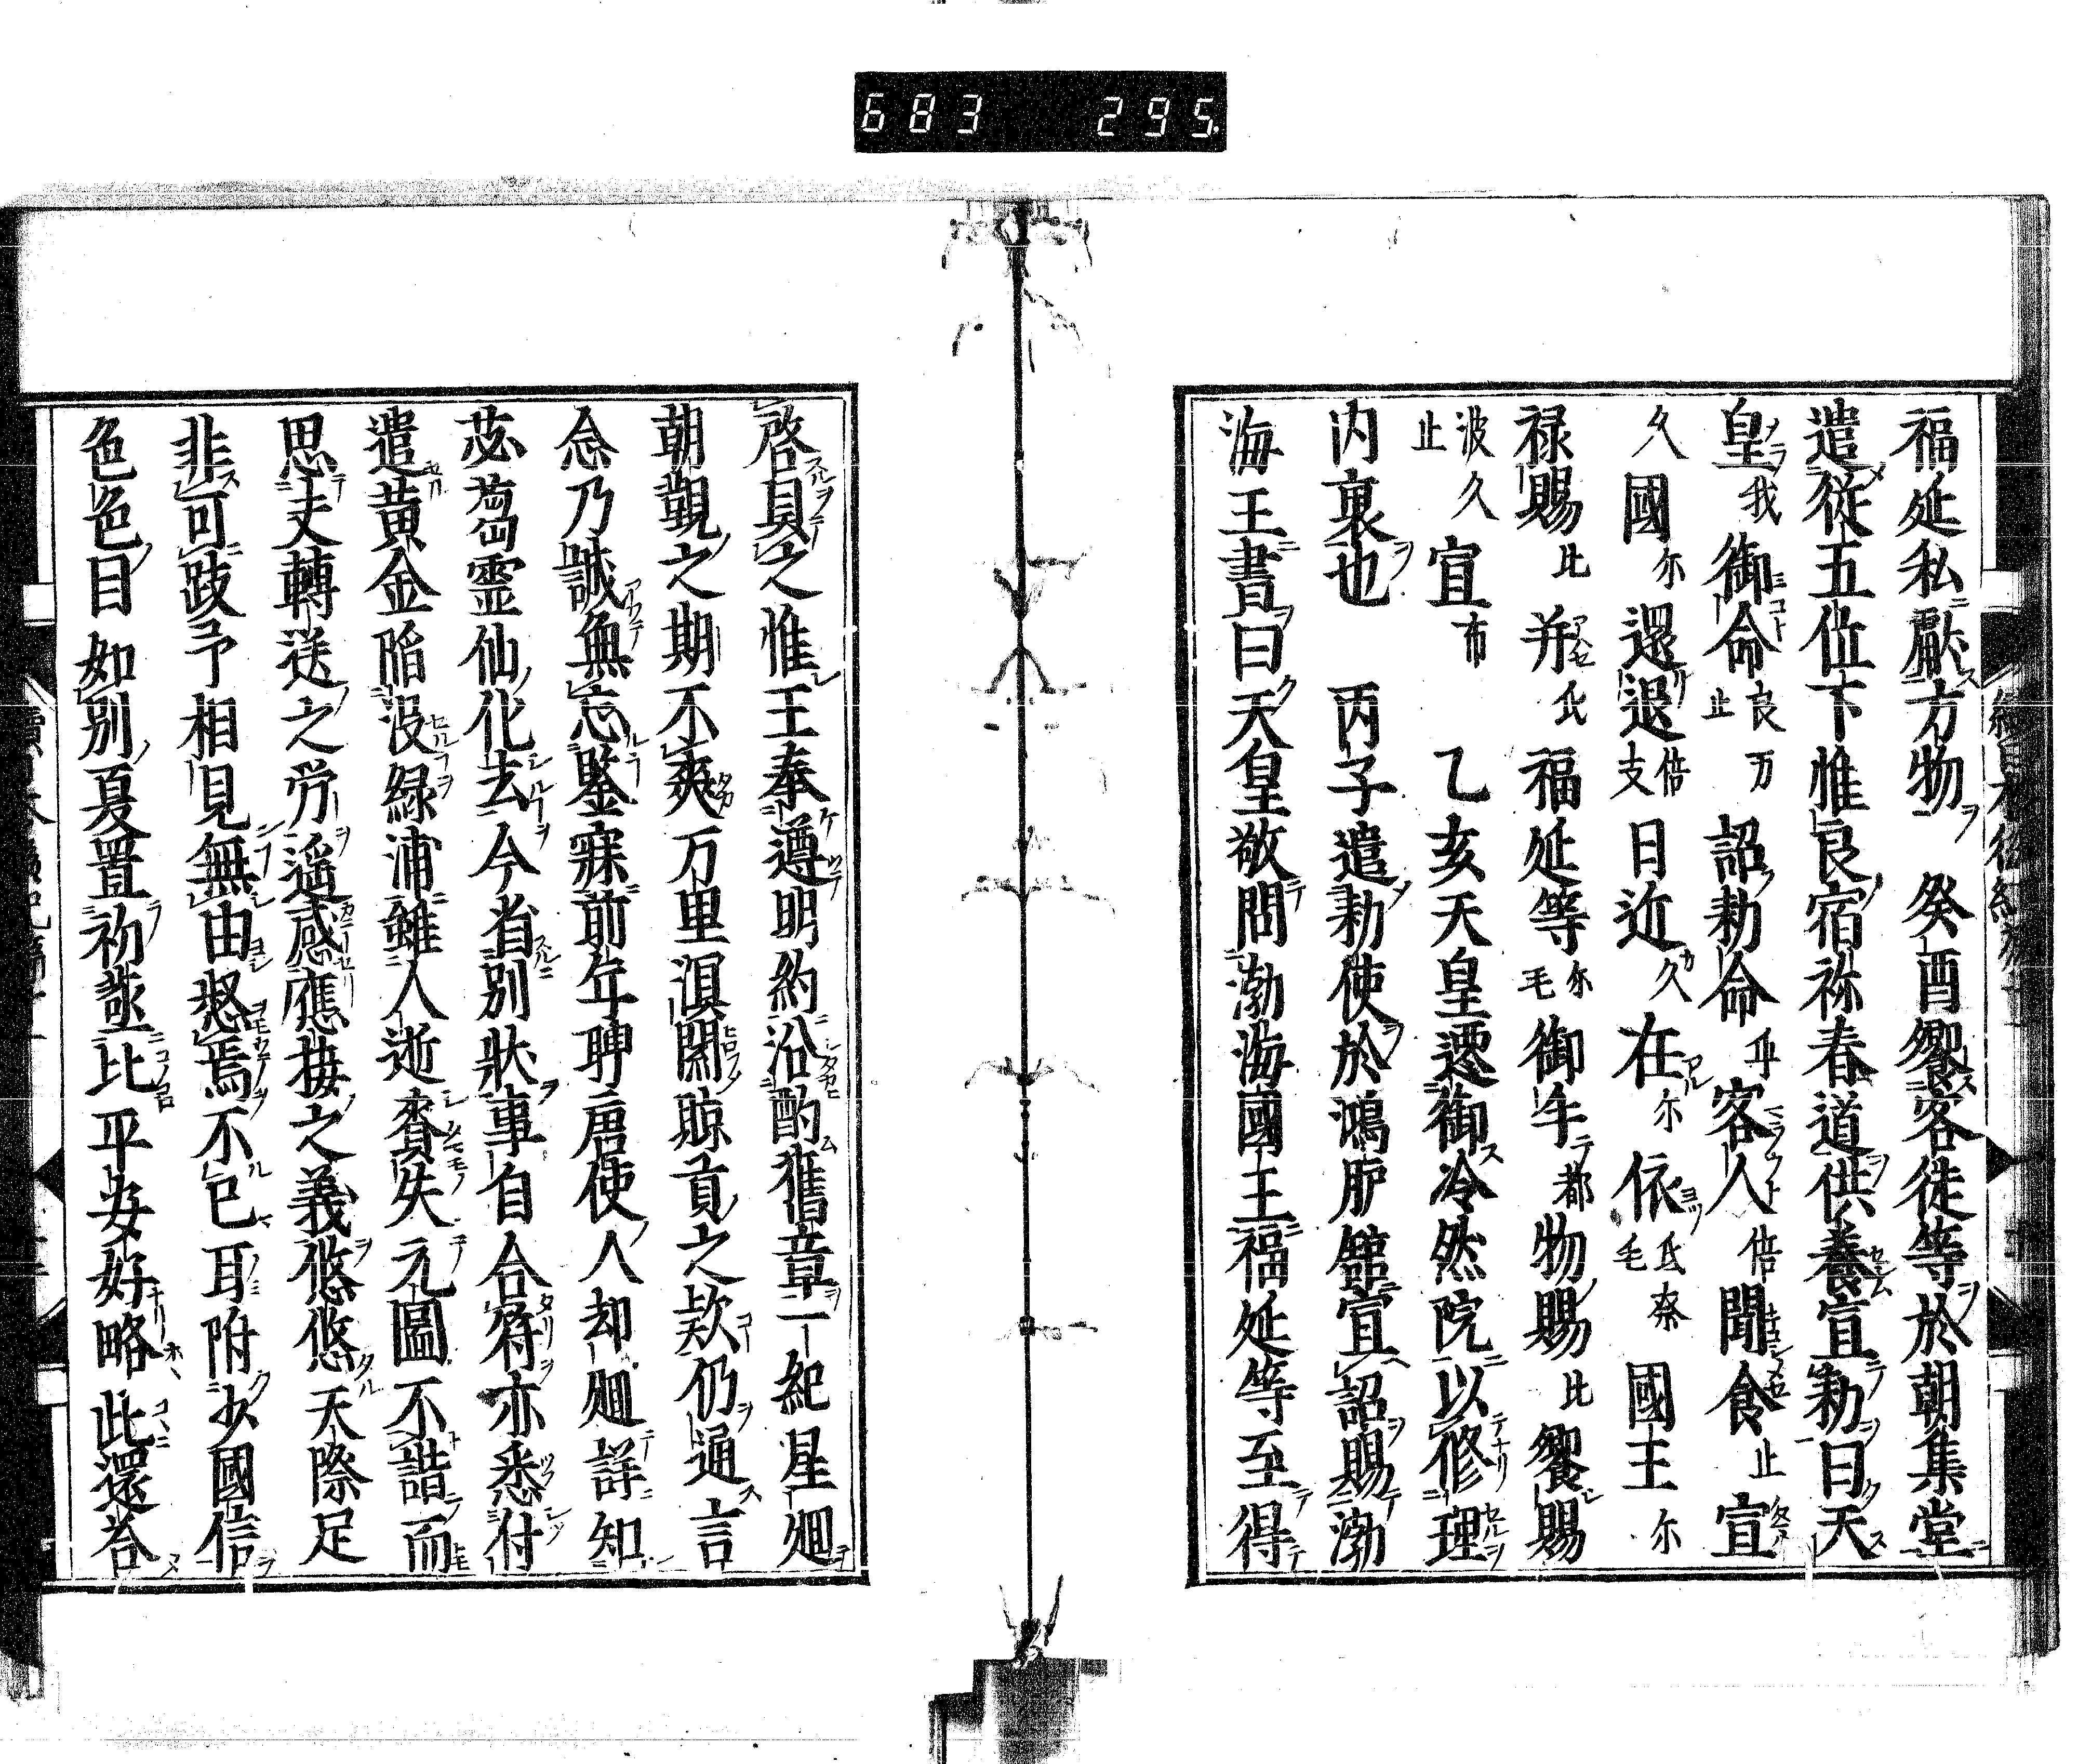 683 295
福延私獻方物 癸酉饗客徒等於朝集堂
遣從五位下惟良宿祢春道供養宣勅曰天
皇我御命良万止詔勅命乎客人倍聞食止宣
久國尓還退倍支日近久在尓依氐奈毛國王尓
禄賜比并氐福延等尓毛御手都物賜比饗賜
波久止宣布 乙亥天皇遷御冷然院以修理
内裏也 丙子遣勅使於鴻臚館宣詔賜渤
海王書曰天皇敬問渤海國王福延等至得
啓具之惟王奉遵明約沿酌舊章一紀星廻
朝覲之期不爽万里溟闊賝貢之欵仍通言
念乃誠無忘鑒寐前年聘唐使人却廻詳知
苾蒭靈仙化去今省別狀事自合符亦悉付
遣黄金陷没緑浦雖人逝賚失元圖不諧而
思夫轉送之労遥感應接之義悠悠天際足
非可跂予相見無由怒焉不已耳附少國信
色色目如別夏置初蒸比平安好略此還荅